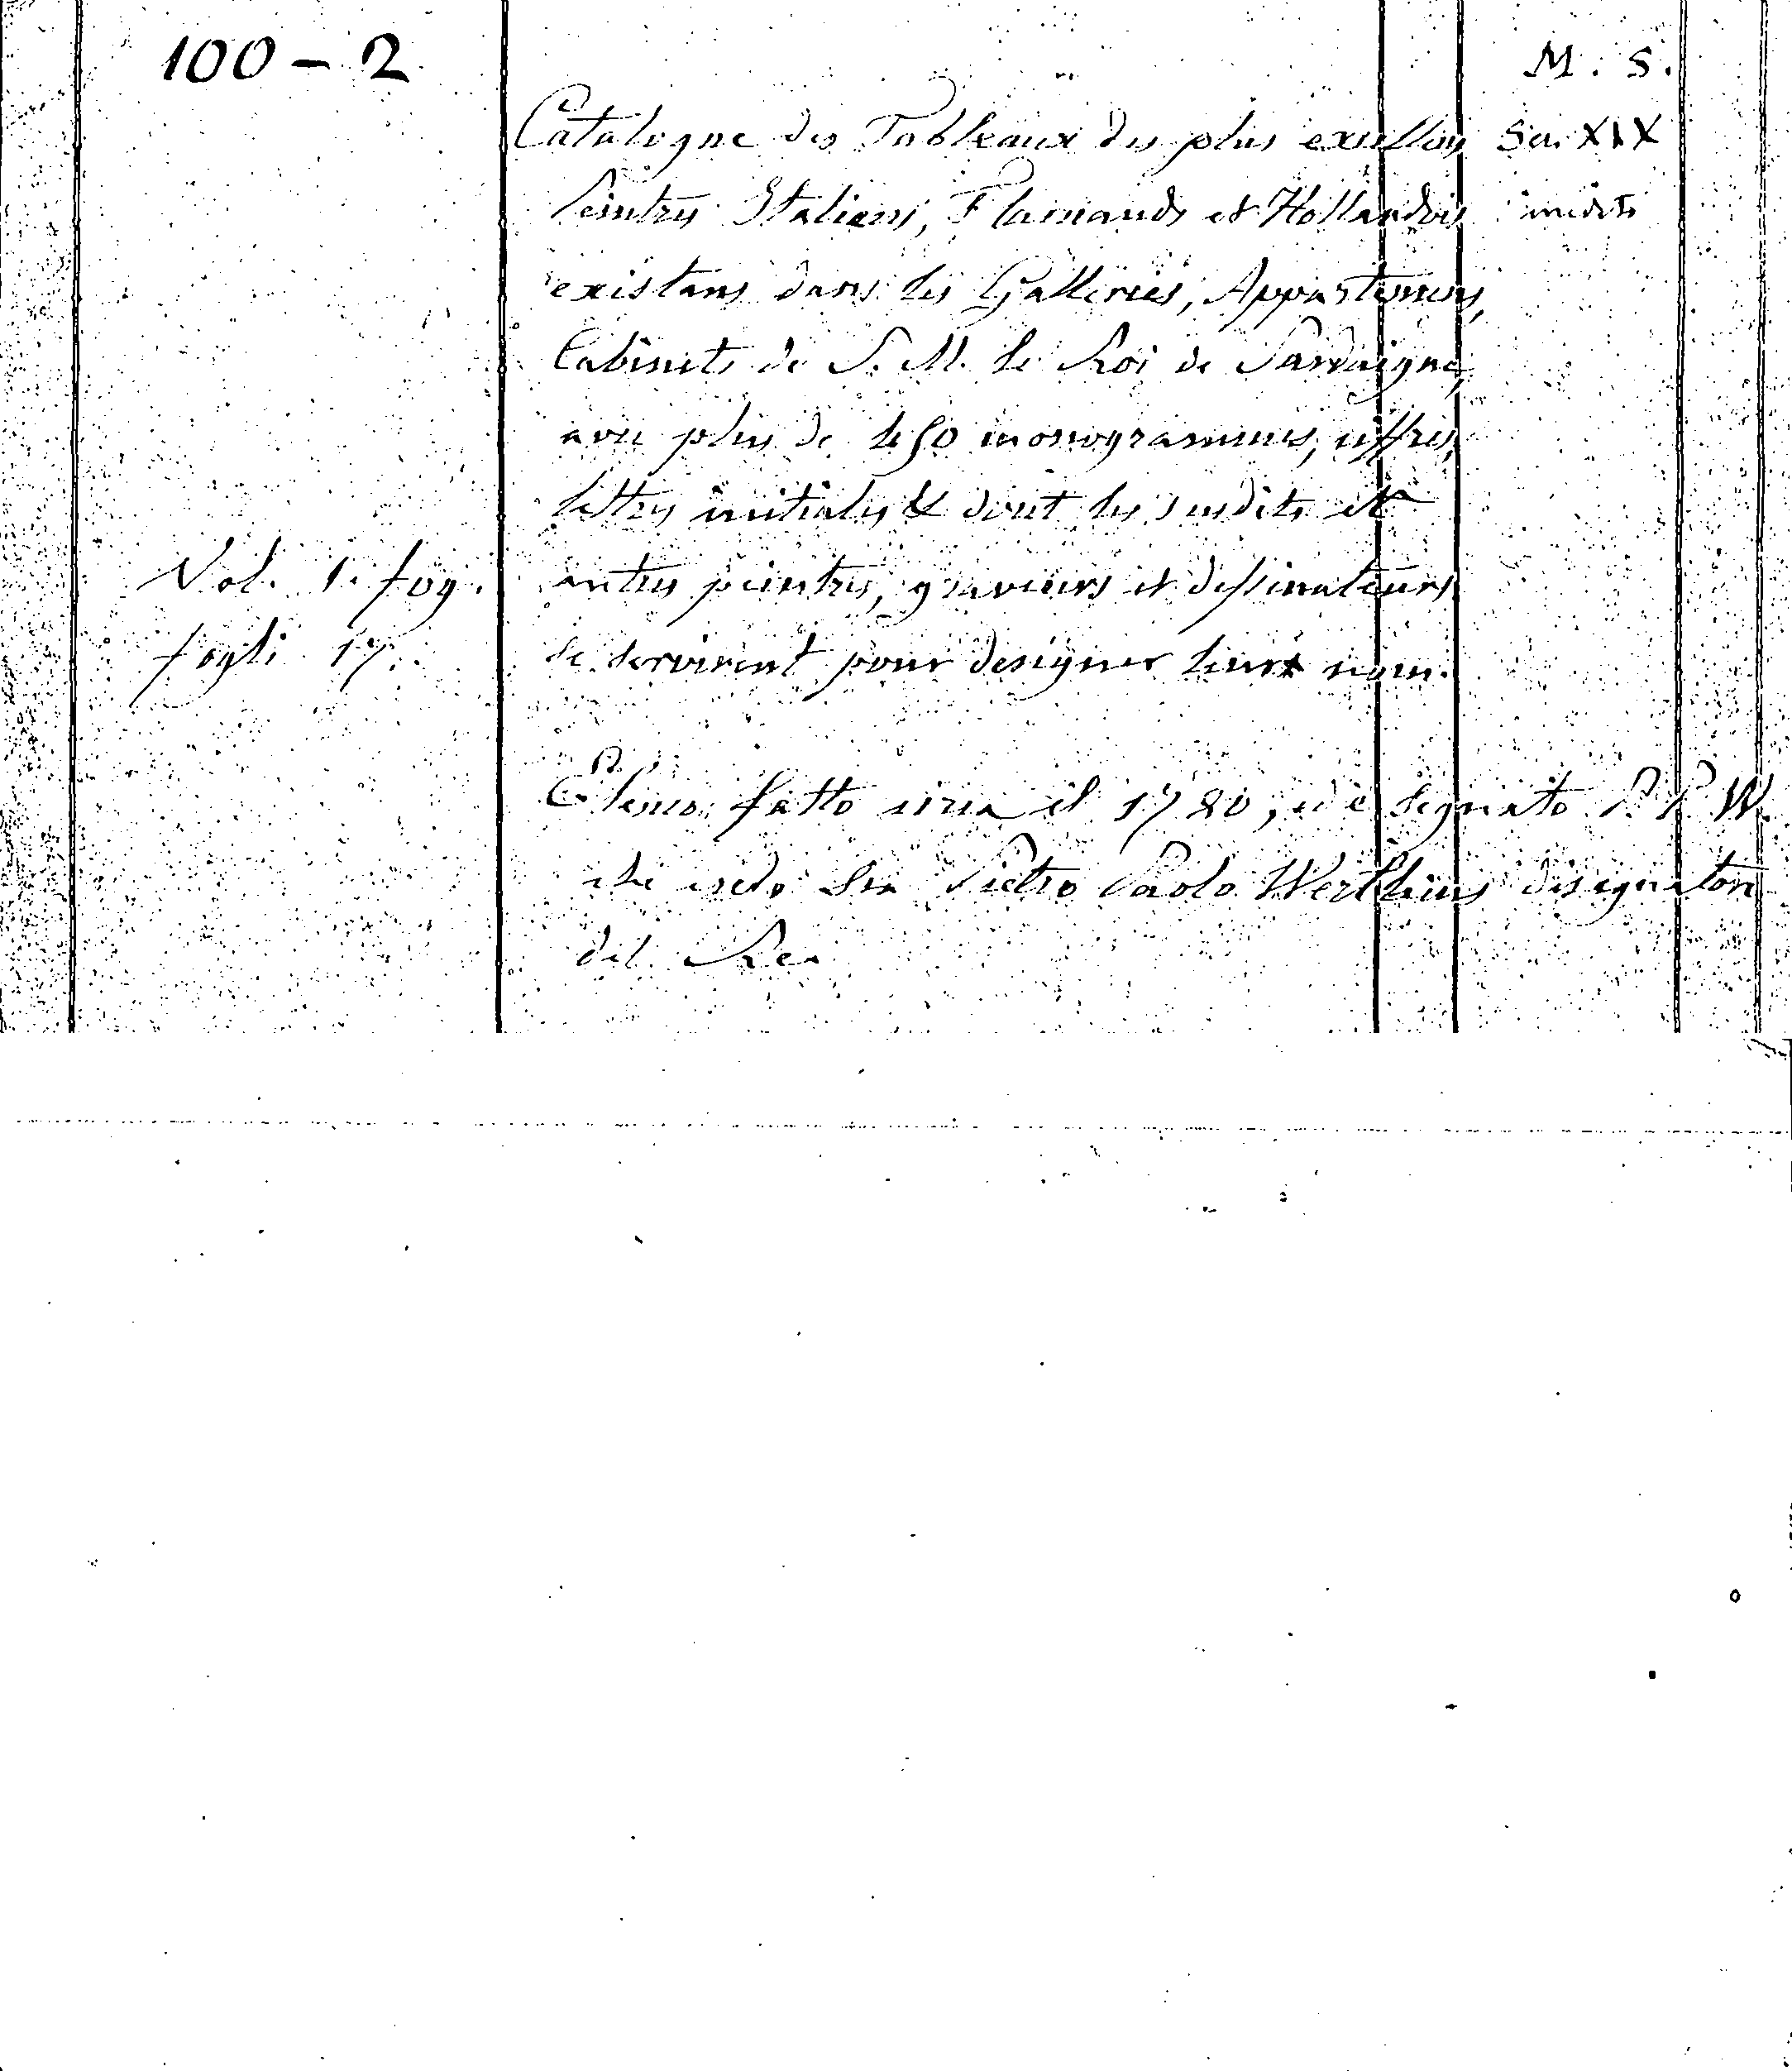 100 - 2
M. S.
Catalogue des Tableaux des plus excellens
Sec. XIX
Peintres Italiens, Flamands et Hollandois
inedito
existans dans les Galleries, Appartemens,
Cabinets de S. M. le Roi de Sardaigne,
avec plus de 450 monogrammes, ciffres,
lettres initiales & dont les susdits et
Vol. 1. fog.
autres peintres, graveurs et dessinateurs
fogli 17.
se servirent pour designer leurs nom.
Elenco fatto circa il 1780, ed è segnato P. P. W.
che credo sia Pietro Paolo Werhlins disegnatore
del Re